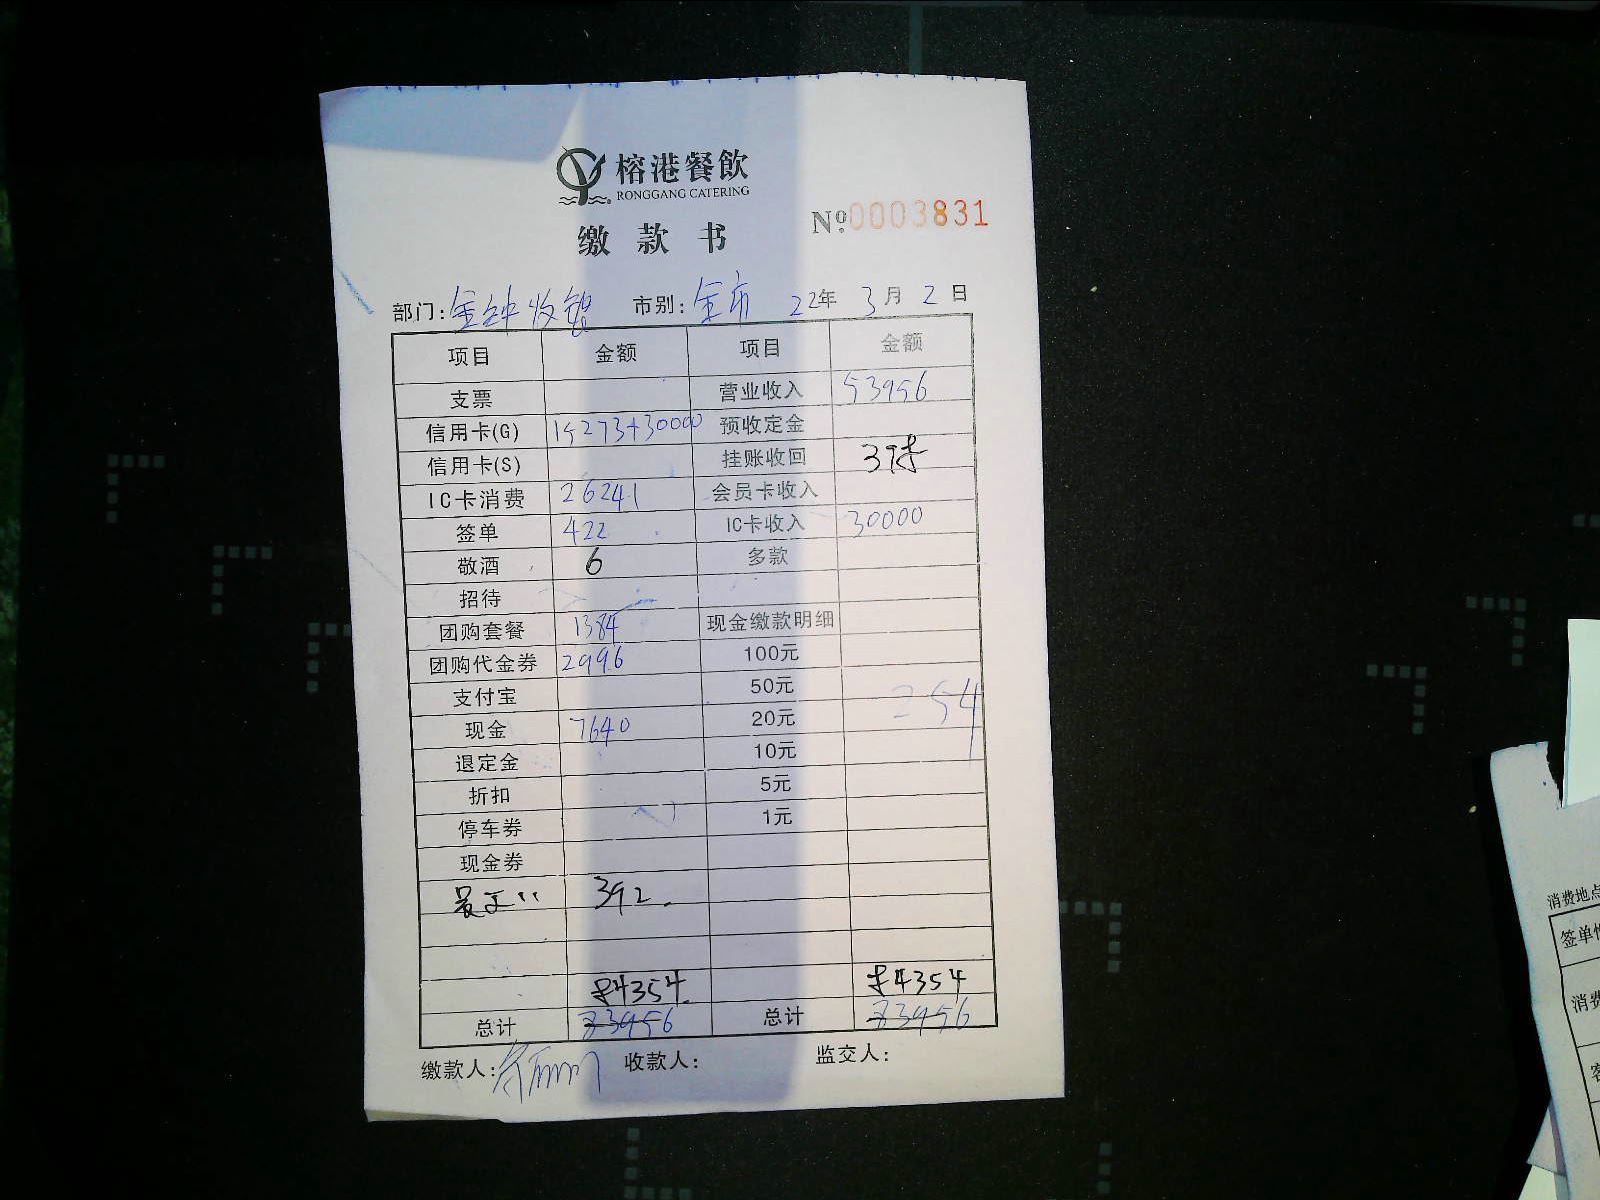 榕港餐飲
RONGGANG CATERING
缴款书
№0003831
部门:金钟收银 市别:全市 22年3月2日
项目 金额 项目 金额
支票 营业收入 53956
信用卡(G) 15273+30000 预收定金
信用卡(S) 挂账收回
IC卡消费 26241 会员卡收入
签单 422 IC卡收入 30000
敬酒 6 多款
招待
团购套餐 1384 现金缴款明细
团购代金券 2996 100元
支付宝 50元 254
现金 7640 20元
退定金 10元
折扣 5元
停车券 1元
现金券
392.
84354. 84354
总计 83956 总计 83956
缴款人: 收款人: 监交人:
消费地点
签单
消费
客